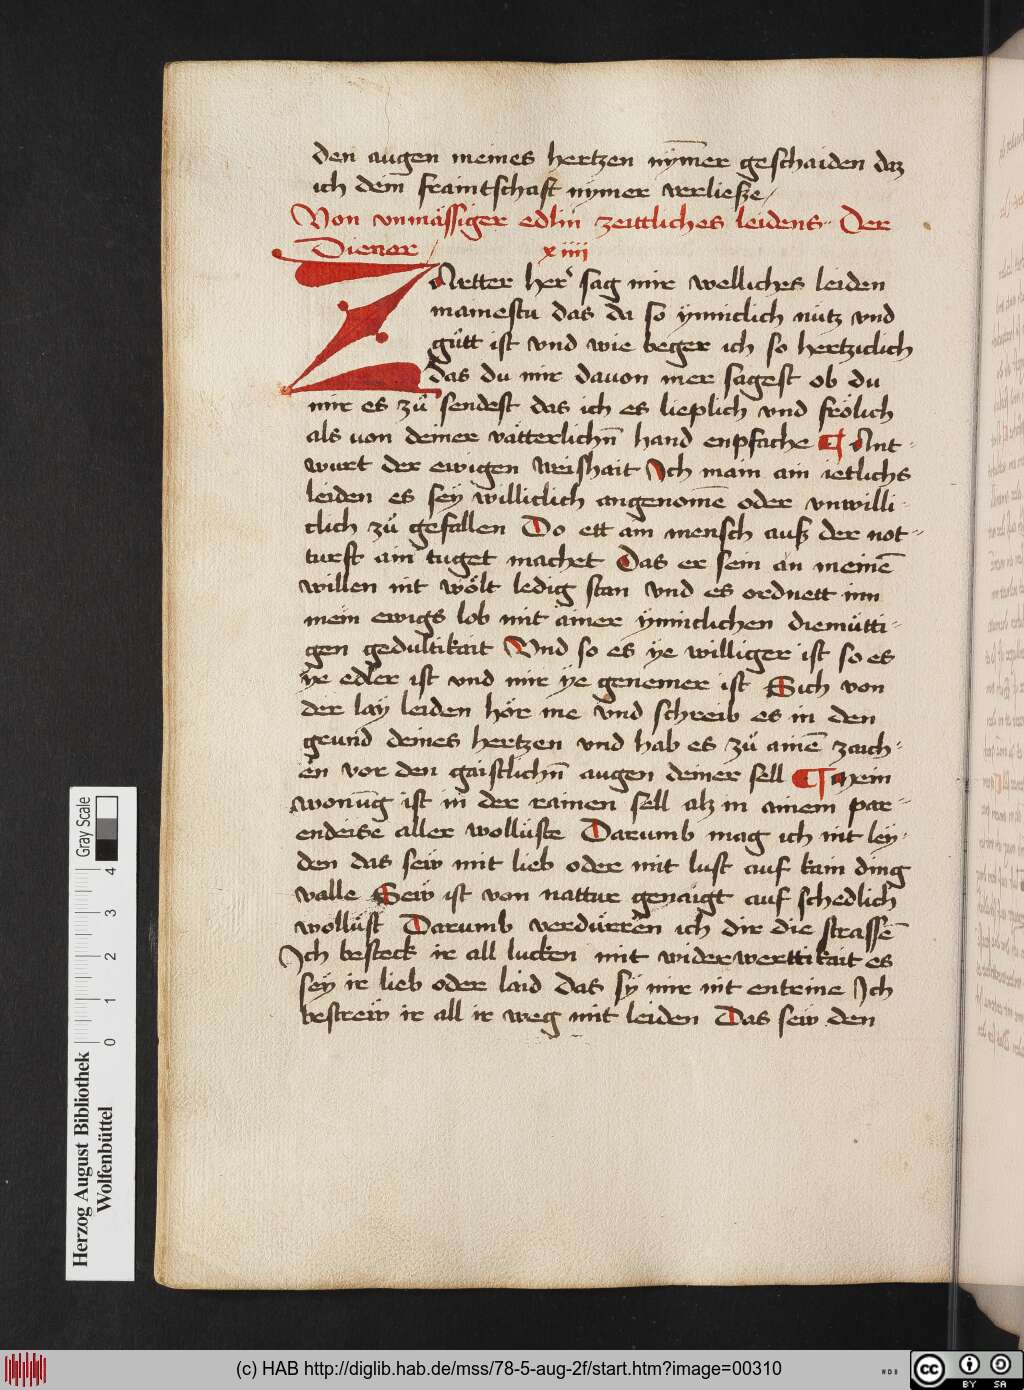 den augen meines hertzen nym̄er geschaiden daz
ich dein fraintschaft nymer verliesze
Von vnmässiger edlin zeittliches leidens Der
Diener xiiii
ZArtter her sag mir welliches leiden
mainestu das da so ynniclich nütz vnd
gütt ist vnd wie beger ich so hertziclich
das du mir dauon mer sagest ob du
mir es zů sendest das ich es lieplich vnd frölich
als von deiner vätterlichn̄ hand enpfache ¶ Ant-
wurt der ewigen weishait Ich main ain ietlichs
leiden es sey williclich angenomē oder vnwilli-
clich zů gefallen Do ett ain mensch ausz der not-
turft ain tuget machet Das er sein an meinē
willen nit wölt ledig stan vnd es ordnett inn
mein ewigs lob mit ainer ynniclichen diemütti-
gen gedultikait Vnd so es ye williger ist so es
ye edler ist vnd mir ye genemer ist Sich von
der lay leiden hör me vnd schreib es in den
grund deines hertzen vnd hab es zů ainē zaich-
en vor den gaistlichn̄ augen deiner sell ¶ Mein
wonūg ist in der rainen sell alz in ainem par-
endeise aller wollüste Darumb mag ich nit ley-
den das seẅ mit lieb oder mit lust auf kain ding
valle Seẅ ist von nattur genaigt auf schedlich
wollüst Darumb verdürren ich dir die strassē
Ich besteck ir all lucken mit widerwerttikait es
sey ir lieb oder laid das sy mir nit entrine Ich
bestreẅ ir all ir weg mit leiden Das seẅ den
Herzog August Bibliothek
Wolfenbüttel
0 1 2 3 4
Gray Scale
(c) HAB http://diglib.hab.de/mss/78-5-aug-2f/start.htm?image=00310
cc BY SA